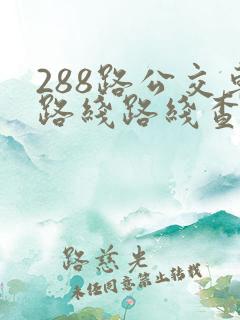 288路公交
路线路线查
路慈先
未经同意禁止转载